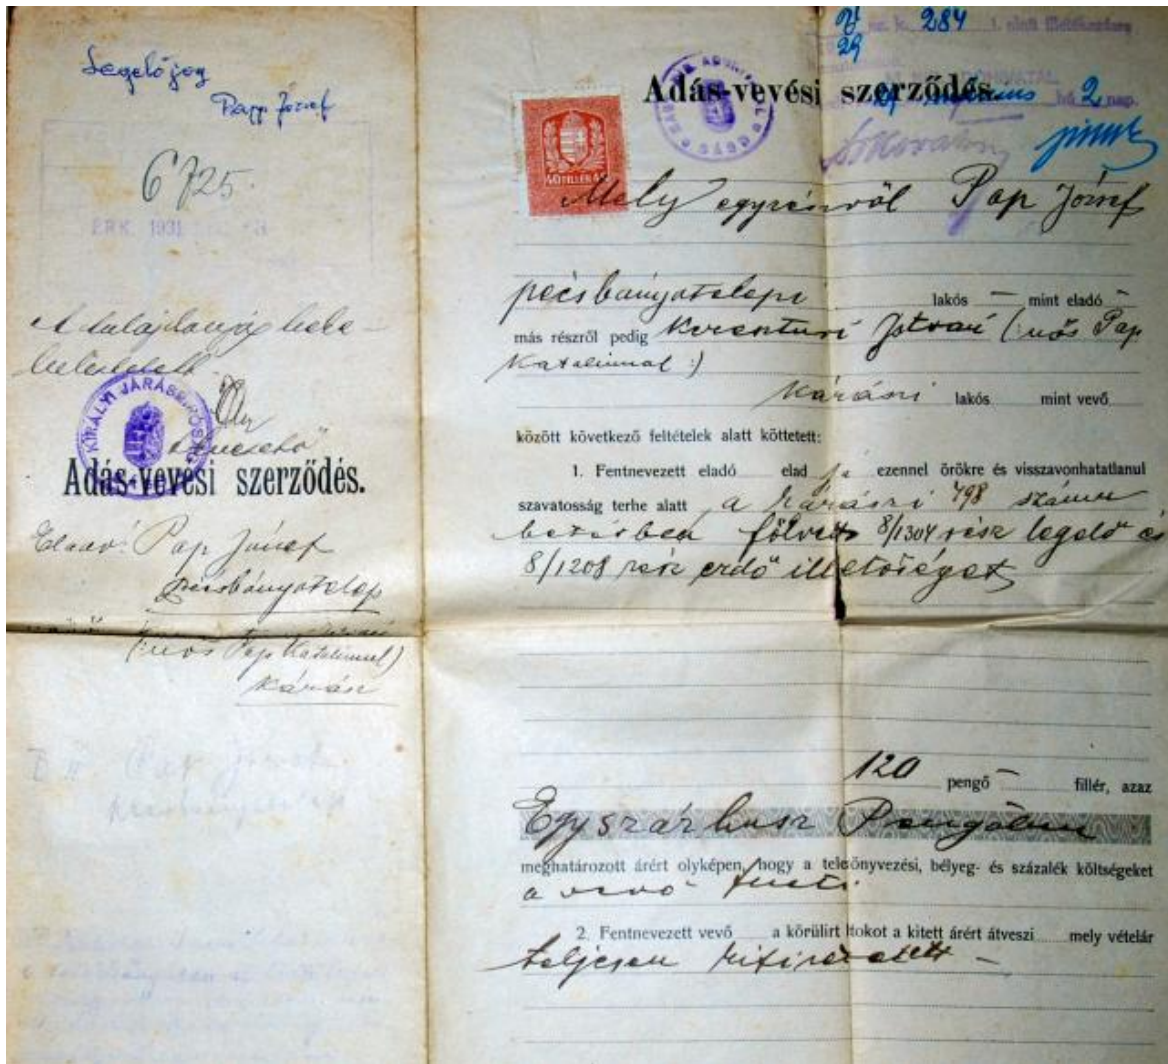 Legelőjog
Papp József
6725.
ÉRK. 1931
A tulajdonjog beke-
beleztetett.
KIRÁLYI JÁRÁSBÍRÓSÁG
Adás-vevési szerződés.
Eladó: Pap József
pécsbányatelep
(: nős Pap Katalinnal)
Kárász
284
29
2 nap.
Adás-vevési szerződés.
40 FILLÉR 40
Mely egyrészről Pap József
pécsbányatelepi lakós – mint eladó –
más részről pedig Kereszturi István (: nős Pap
Katalinnal :)
kárászi lakós mint vevő
között következő feltételek alatt köttetett:
1. Fentnevezett eladó elad ja ezennel örökre és visszavonhatatlanul
szavatosság terhe alatt a kárászi 498 számu
betétben fölvett 8/1304 rész legelő és
8/1208 rész erdő illetőséget
120 pengő – fillér, azaz
Egyszázhusz Pengőben
meghatározott árért olyképen, hogy a telekönyvezési, bélyeg- és százalék költségeket
a vevő fizeti.
2. Fentnevezett vevő a körülirt itokot a kitett árért átveszi mely vételár
teljesen kifizettetett –